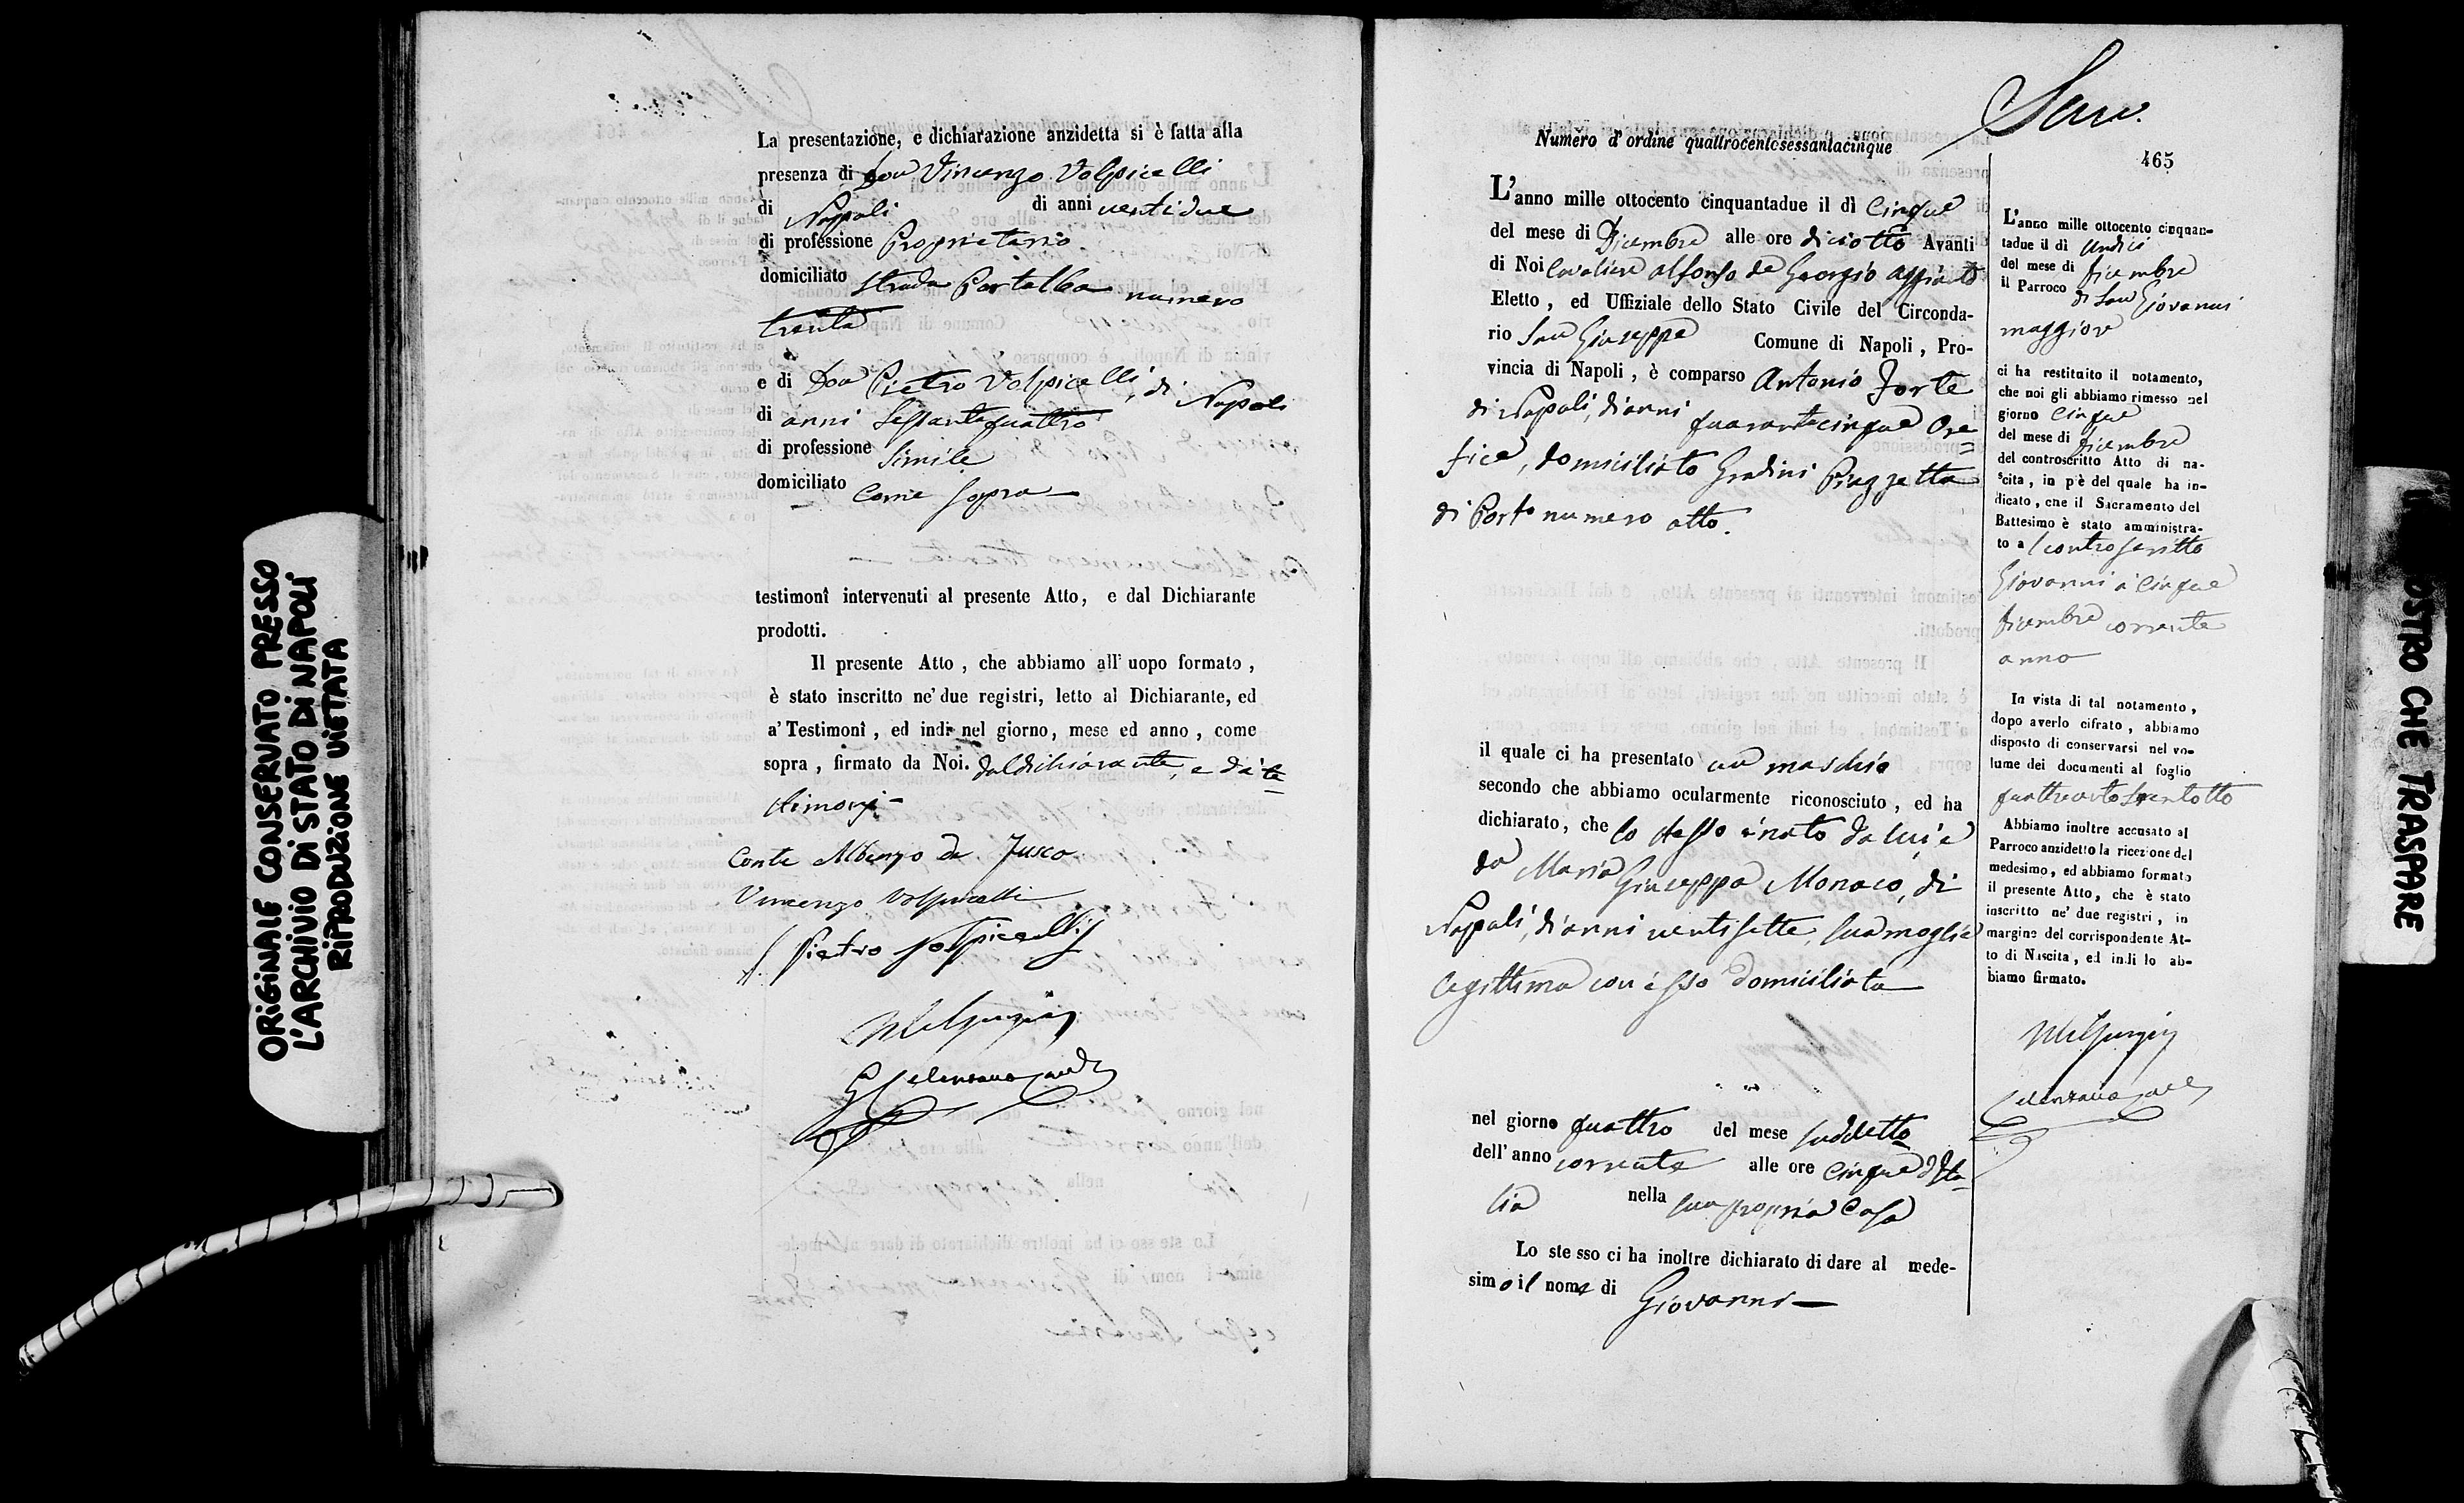 ORIGINALE CONSERVATO PRESSO
L'ARCHIVIO DI STATO DI NAPOLI
RIPRODUZIONE VIETATA
La presentazione, e dichiarazione anzidetta si è fatta alla
presenza di Don Vincenzo Volpicelli
di Napoli di anni ventidue
di professione Proprietario
domiciliato strada Portalba numero
trenta
e di Don Pietro Volpicelli, di Napoli
di anni Sessantaquattro
di professione Simile
domiciliato Come sopra
testimonî intervenuti al presente Atto, e dal Dichiarante
prodotti.
Il presente Atto, che abbiamo all' uopo formato,
è stato inscritto ne' due registri, letto al Dichiarante, ed
a' Testimonî, ed indi nel giorno, mese ed anno, come
sopra, firmato da Noi. dal dichiarante, e da' te=
stimonj-
Conte Albenzo de Jusco
Vincenzo Volpicelli
Pietro Volpicelli
Serv.
Numero d' ordine quattrocentosessantacinque
465
L'anno mille ottocento cinquantadue il dì Cinque
del mese di Dicembre alle ore diciotto Avanti
di Noi Cavaliere Alfonso de Georgio Aggiunto
Eletto, ed Uffiziale dello Stato Civile del Circonda-
rio San Giuseppe Comune di Napoli, Pro-
vincia di Napoli, è comparso Antonio Forte
di Napoli, di anni quarantacinque Ore=
fice, domiciliato Gradini Piazzetta
di Porto numero otto.
il quale ci ha presentato un maschio
secondo che abbiamo ocularmente riconosciuto, ed ha
dichiarato, che lo stesso è nato da lui e
da Maria Giuseppa Monaco, di
Napoli, di anni ventisette, sua moglie
legittima con esso domiciliata
nel giorno quattro del mese suddetto
dell' anno corrente alle ore cinque d'Ita-
lia nella sua propria Casa
Lo ste sso ci ha inoltre dichiarato di dare al mede-
simo il nome di Giovanni
L'anno mille ottocento cinquan-
tadue il dì Undici
del mese di Dicembre
il Parroco di San Giovanni
maggiore
ci ha restituito il notamento,
che noi gli abbiamo rimesso nel
giorno Cinque
del mese di Dicembre
del controscritto Atto di na-
scita, in piè del quale ha in-
dicato, che il Sacramento del
Battesimo è stato amministra-
to al controscritto
Giovanni a' Cinque
Dicembre corrente
anno
In vista di tal notamento,
dopo averlo cifrato, abbiamo
disposto di conservarsi nel vo-
lume dei documenti al foglio
Abbiamo inoltre accusato al
Parroco anzidetto la ricezione del
medesimo, ed abbiamo formato
il presente Atto, che è stato
inscritto ne' due registri, in
margine del corrispondente At-
to di Nascita, ed indi lo ab-
biamo firmato.
OSTRO CHE TRASPARE